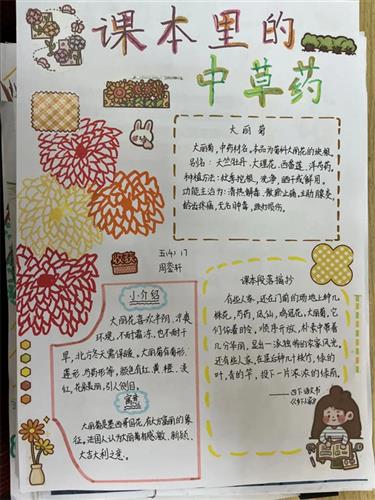 课本里的
中草药
大丽菊
大丽菊,中药材名。本品为菊科大丽花的块根。
别名:天竺牡丹、大理花、西番莲、洋芍药。
种植历史:秋季挖根,洗净,晒干或鲜用。
功能主治为:清热解毒、散瘀止痛。主治腮腺炎,
龋齿疼痛,无名肿毒,跌打损伤。
五(4) 17
收获
小介绍
大丽花喜欢半阴,凉爽
环境,不耐霜冻,也不耐干
旱,北方冬天需保暖。大丽菊有菊形、
莲形、芍药形等,颜色有红、黄、橙、淡
红,花朵艳丽,引人侧目。
寓意
大丽菊是墨西哥国花,有大方富丽的象
征,法国人认为大丽菊有感激、新颖、
大吉大利之意。
课本段落摘抄
有些人家,还在门前的场地上种几
株花,芍药,凤仙,鸡冠花,大丽菊,它
们依着时令,顺序开放,朴素中带着
几分华丽,显出一派独特的农家风光。
还有些人家,在屋后种几十枝竹,绿的
叶,青的竿,投下一片浓浓的绿荫。
——四下语文书
《乡下人家》